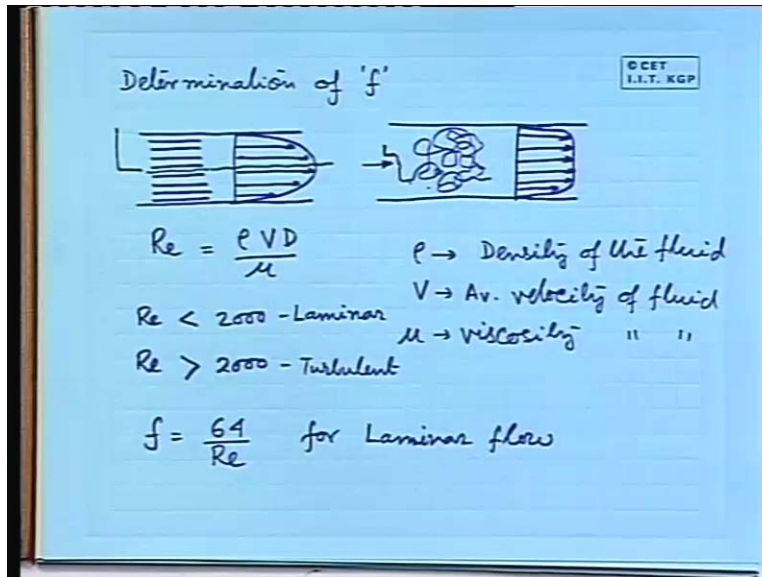 Determination of 'f'
© CET
I.I.T. KGP
Re = ρVD/μ
ρ → Density of the fluid
V → Av. velocity of fluid
μ → viscosity " "
Re < 2000 - Laminar
Re > 2000 - Turbulent
f = 64/Re for Laminar flow